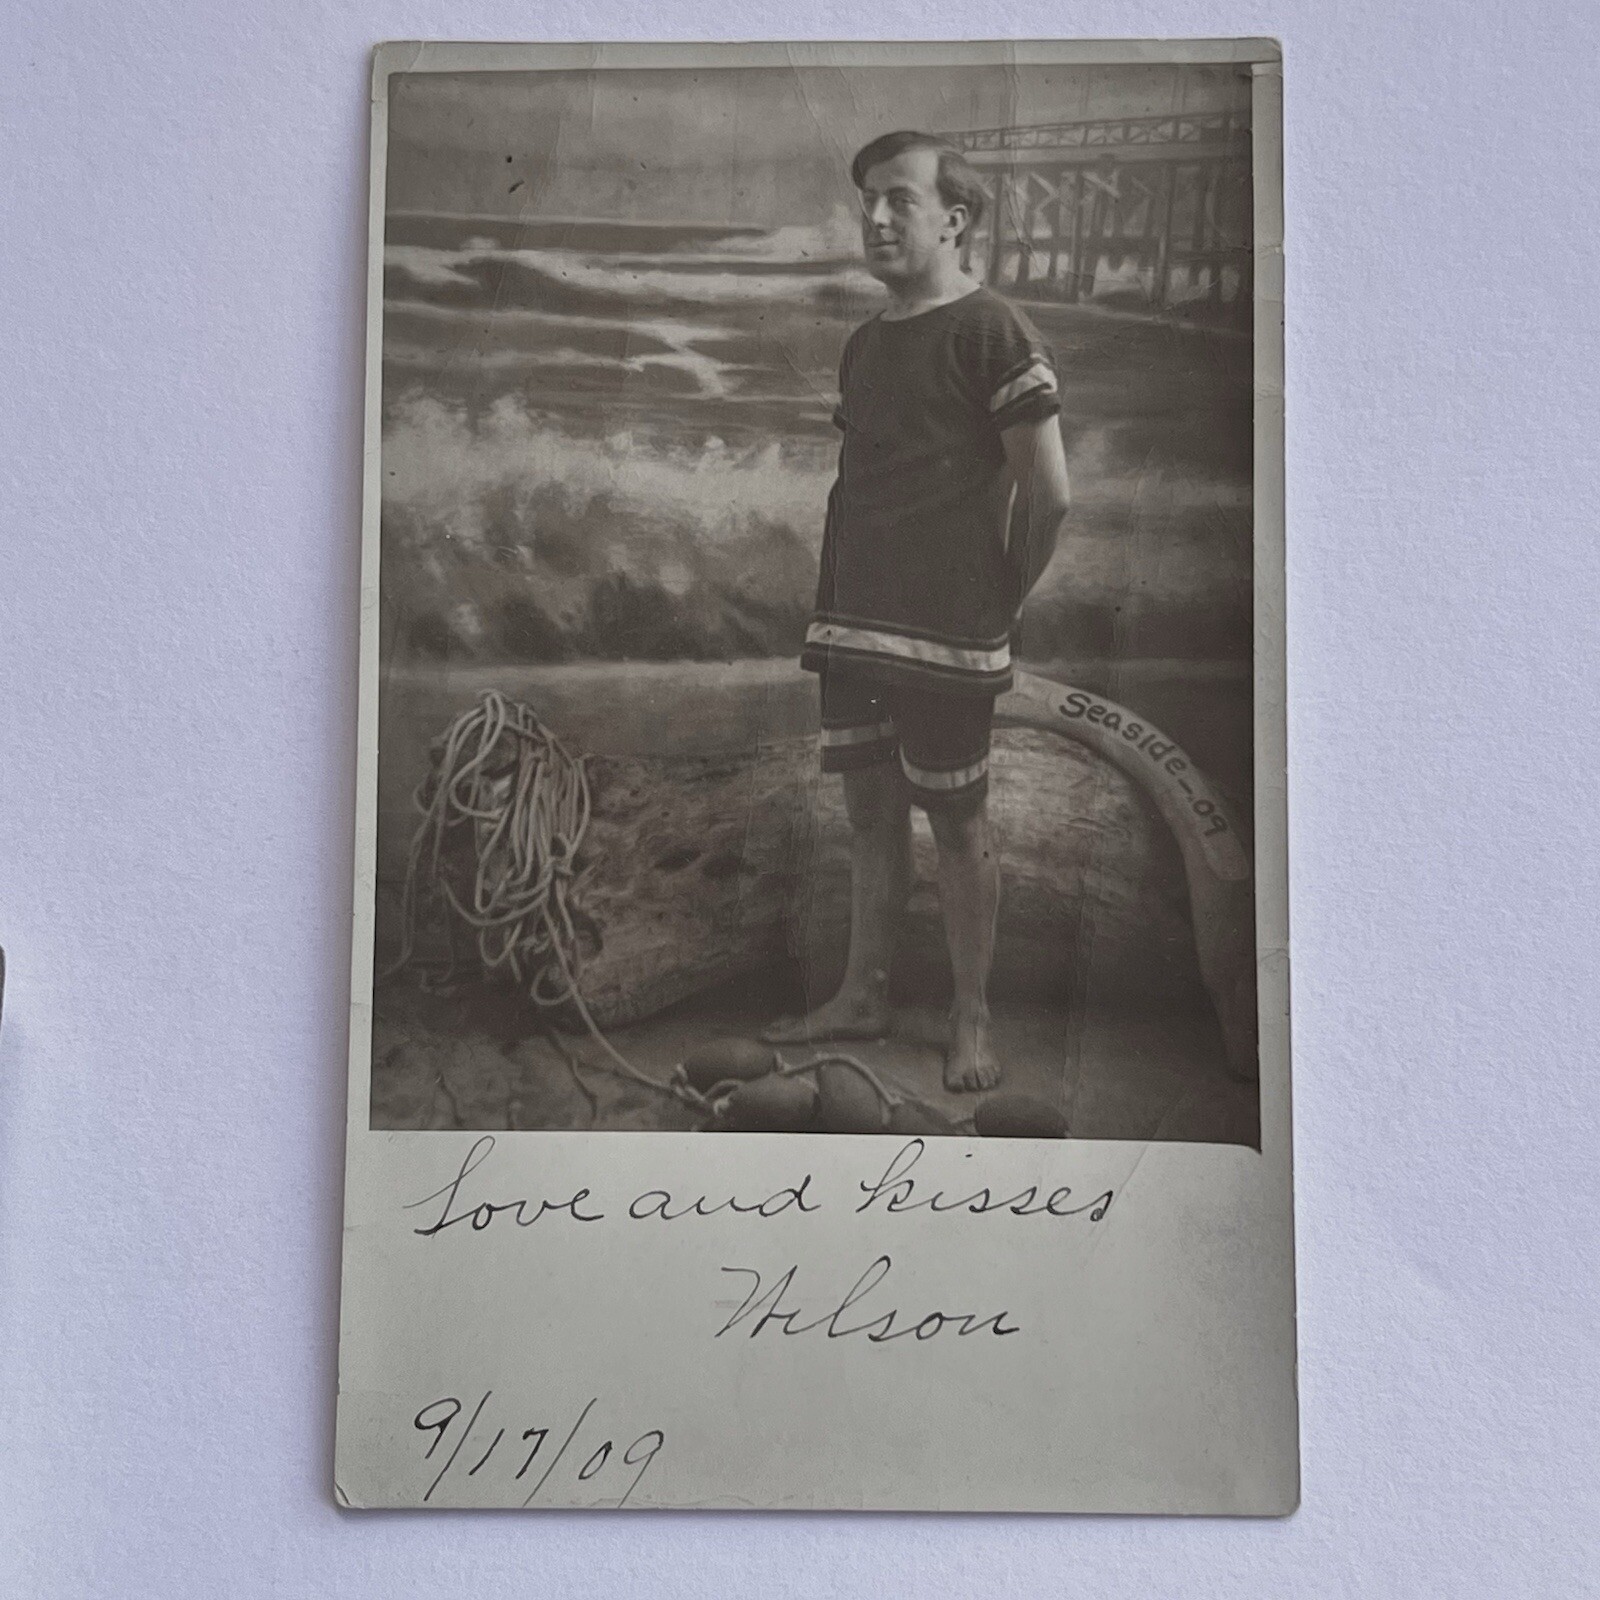 Seaside-.09
Love and kisses
Wilson
9/17/09